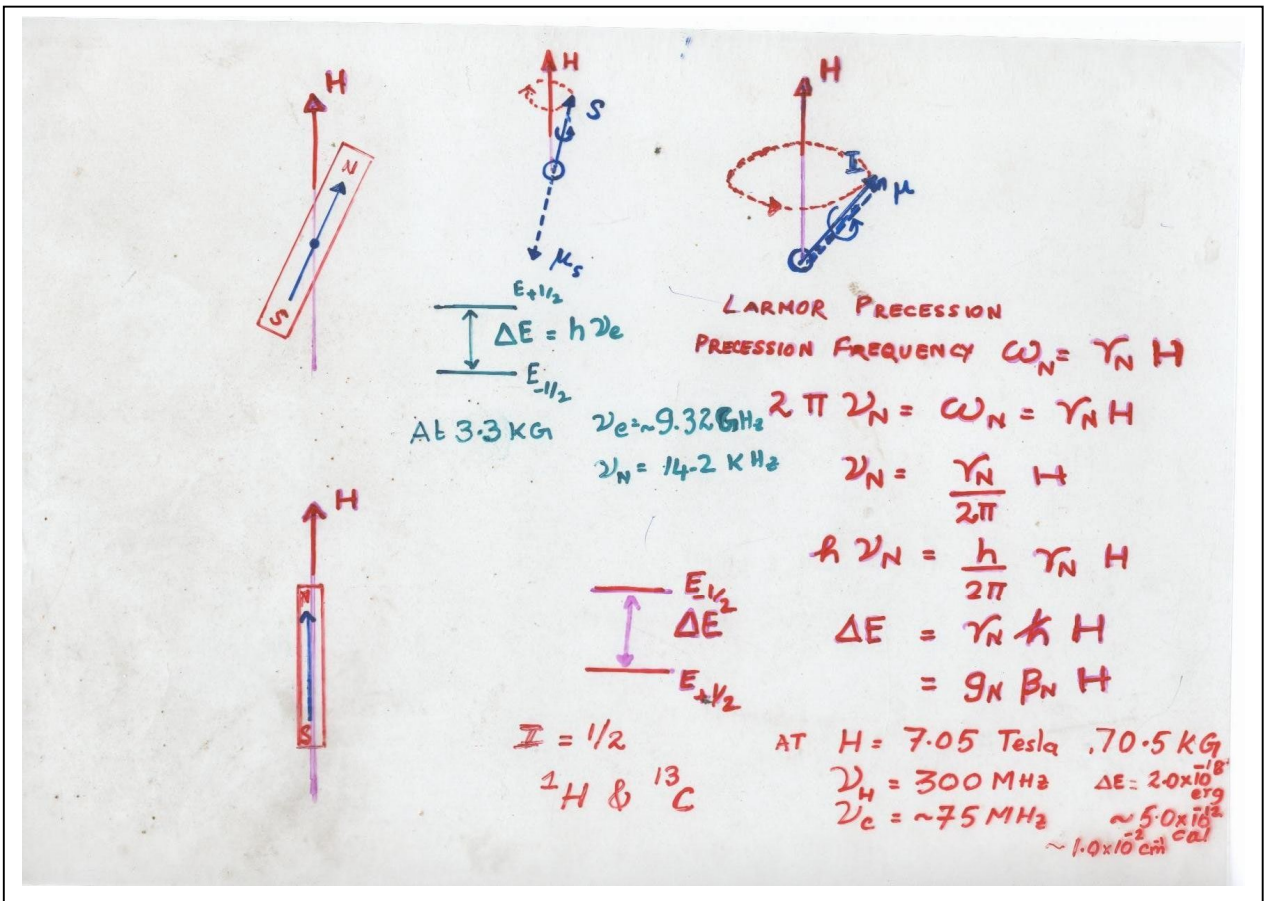 H
N
S
H
S
μs
H
I
μ
E+1/2
ΔE = hνe
E-1/2
At 3.3 KG νe=~9.32GHz
νN = 14.2 KHz
LARMOR PRECESSION
PRECESSION FREQUENCY ωN = γN H
2 π νN = ωN = γN H
νN = γN/2π H
h νN = h/2π γN H
ΔE = γN ħ H
= gN βN H
H
N
S
E-1/2
ΔE
E+1/2
I = 1/2
¹H & ¹³C
AT H = 7.05 Tesla ,70.5 KG
νH = 300 MHz ΔE = 2.0x10⁻¹⁸ erg
νC = ~75 MHz ~ 5.0x10⁻¹² cal
~ 1.0x10⁻² cm⁻¹